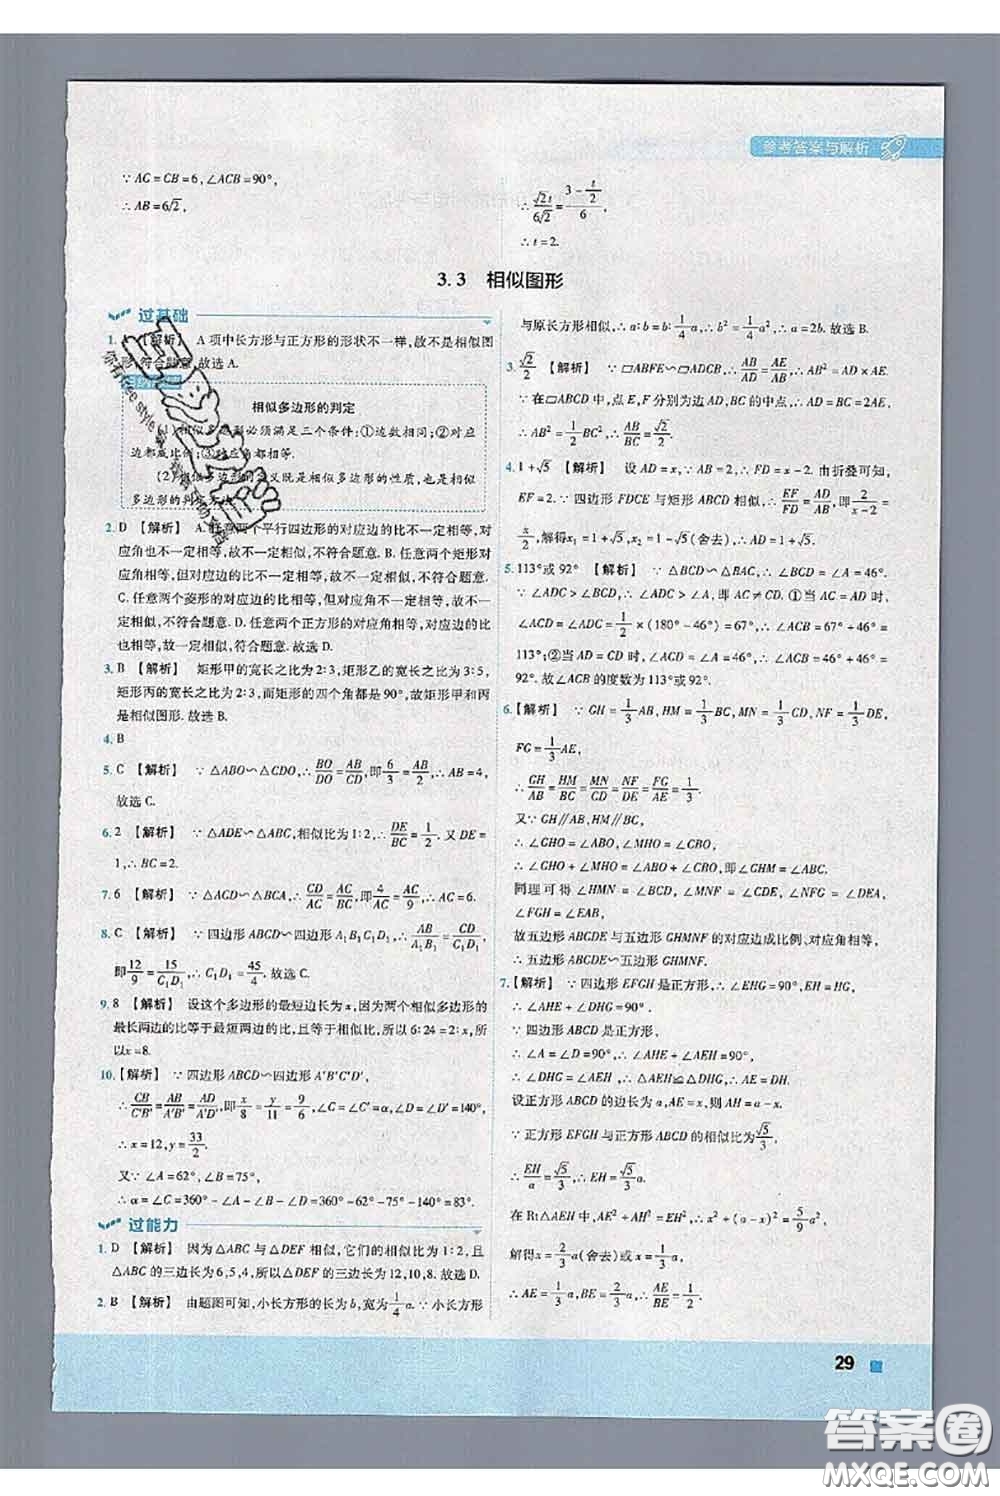 参考答案与解析
∵ AC = CB = 6, ∠ACB = 90°,
∴ AB = 6√2,
∴ √2t/6√2 = (3 - t/2)/6,
∴ t = 2.
3.3 相似图形
过基础
1. 【解析】 A 项中长方形与正方形的形状不一样,故不是相似图
形,符合题意,故选 A.
相似多边形的判定
(1)相似多边形必须满足三个条件:①边数相同;②对应
边都成比例;③对应角都相等.
(2)相似多边形的定义既是相似多边形的性质,也是相似
多边形的判定方法.
2. D 【解析】 A. 任意两个平行四边形的对应边的比不一定相等,对
应角也不一定相等,故不一定相似,不符合题意. B. 任意两个矩形对
应角相等,但对应边的比不一定相等,故不一定相似,不符合题意.
C. 任意两个菱形的对应边的比相等,但对应角不一定相等,故不一
定相似,不符合题意. D. 任意两个正方形的对应角相等,对应边的比
也相等,故一定相似,符合题意. 故选 D.
3. B 【解析】 矩形甲的宽长之比为 2:3,矩形乙的宽长之比为 4:5,
矩形丙的宽长之比为 2:3,而矩形的四个角都是 90°,故矩形甲和丙
是相似图形. 故选 B.
4. B
5. C 【解析】 ∵ △ABO∽△CDO, ∴ BO/DO = AB/CD, 即 6/3 = AB/2, ∴ AB = 4,
故选 C.
6. 2 【解析】 ∵ △ADE∽△ABC, 相似比为 1:2, ∴ DE/BC = 1/2. 又 DE =
1, ∴ BC = 2.
7. 6 【解析】 ∵ △ACD∽△BCA, ∴ CD/AC = AC/BC, 即 4/AC = AC/9, ∴ AC = 6.
8. C 【解析】 ∵ 四边形 ABCD∽四边形 A₁B₁C₁D₁, ∴ AB/A₁B₁ = CD/C₁D₁,
即 12/9 = 15/C₁D₁, ∴ C₁D₁ = 45/4. 故选 C.
9. 8 【解析】 设这个多边形的最短边长为 x,因为两个相似多边形的
最长两边的比等于最短两边的比,且等于相似比,所以 6:24 = 2:x,所
以 x = 8.
10. 【解析】 ∵ 四边形 ABCD∽四边形 A'B'C'D',
∴ CB/C'B' = AB/A'B' = AD/A'D', 即 x/8 = y/11 = 9/6, ∠C = α, ∠D = ∠D' = 140°,
∴ x = 12, y = 33/2.
又∵ ∠A = 62°, ∠B = 75°,
∴ α = ∠C = 360° - ∠A - ∠B - ∠D = 360° - 62° - 75° - 140° = 83°.
过能力
1. D 【解析】 因为 △ABC 与 △DEF 相似,它们的相似比为 1:2,且
△ABC 的三边长为 6,5,4,所以 △DEF 的三边长为 12,10,8. 故选 D.
2. B 【解析】 由题图可知,小长方形的长为 b,宽为 1/4 a. ∵ 小长方形
与原长方形相似, ∴ a:b = b:1/4 a, ∴ b² = 1/4 a², ∴ a = 2b. 故选 B.
3. √2/2 【解析】 ∵ ▱ABFE∽▱ADCB, ∴ AB/AD = AE/AB, ∴ AB² = AD × AE.
∵ 在▱ABCD 中,点 E,F 分别为边 AD,BC 的中点, ∴ AD = BC = 2AE,
∴ AB² = 1/2 BC², ∴ AB/BC = √2/2.
4. 1 + √5 【解析】 设 AD = x, ∵ AB = 2, ∴ FD = x - 2. 由折叠可知,
EF = 2. ∵ 四边形 FDCE 与矩形 ABCD 相似, ∴ EF/FD = AD/AB, 即 2/(x-2) =
x/2, 解得 x₁ = 1 + √5, x₂ = 1 - √5(舍去), ∴ AD = 1 + √5.
5. 113°或 92° 【解析】 ∵ △BCD∽△BAC, ∴ ∠BCD = ∠A = 46°.
∵ ∠ADC > ∠BCD, ∴ ∠ADC > ∠A, 即 AC ≠ CD. ①当 AC = AD 时,
∠ACD = ∠ADC = 1/2 × (180° - 46°) = 67°, ∴ ∠ACB = 67° + 46° =
113°; ②当 AD = CD 时, ∠ACD = ∠A = 46°, ∴ ∠ACB = 46° + 46° =
92°. 故∠ACB 的度数为 113°或 92°.
6. 【解析】 ∵ GH = 1/3 AB, HM = 1/3 BC, MN = 1/3 CD, NF = 1/3 DE,
FG = 1/3 AE,
∴ GH/AB = HM/BC = MN/CD = NF/DE = FG/AE = 1/3.
又∵ GH∥AB, HM∥BC,
∴ ∠GHO = ∠ABO, ∠MHO = ∠CBO,
∴ ∠GHO + ∠MHO = ∠ABO + ∠CBO, 即∠GHM = ∠ABC.
同理可得 ∠HMN = ∠BCD, ∠MNF = ∠CDE, ∠NFG = ∠DEA,
∠FGH = ∠EAB,
故五边形 ABCDE 与五边形 GHMNF 的对应边成比例、对应角相等,
∴ 五边形 ABCDE∽五边形 GHMNF.
7. 【解析】 ∵ 四边形 EFGH 是正方形, ∴ EH = HG, ∠EHG = 90°,
∴ ∠AHE + ∠DHG = 90°.
∵ 四边形 ABCD 是正方形,
∴ ∠A = ∠D = 90°, ∴ ∠AHE + ∠AEH = 90°,
∴ ∠DHG = ∠AEH, ∴ △AEH≌△DHG, ∴ AE = DH.
设正方形 ABCD 的边长为 a, AE = x, 则 AH = a - x.
∵ 正方形 EFGH 与正方形 ABCD 的相似比为 √5/3,
∴ EH/a = √5/3, ∴ EH = √5/3 a.
在 Rt△AEH 中, AE² + AH² = EH², ∴ x² + (a - x)² = 5/9 a²,
解得 x = 2/3 a(舍去)或 x = 1/3 a,
∴ AE = 1/3 a, BE = 2/3 a, ∴ AE/BE = 1/2.
29
答案圈
MXQE.COM